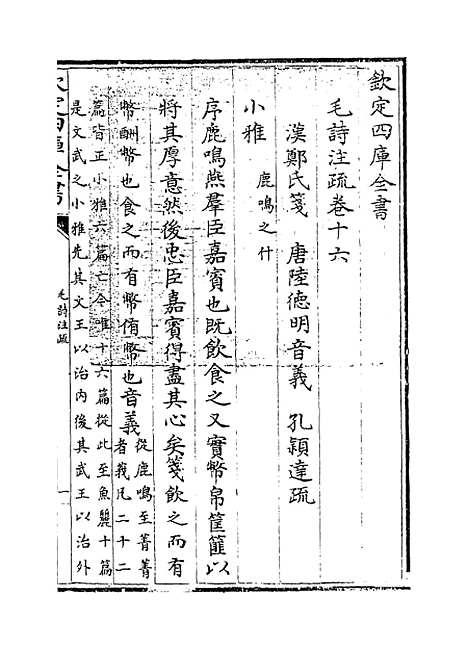 欽定四庫全書
毛詩注疏卷十六
漢鄭氏箋　唐陸德明音義　孔穎達疏
小雅　鹿鳴之什
序鹿鳴燕羣臣嘉賓也既飲食之又實幣帛筐篚以
將其厚意然後忠臣嘉賓得盡其心矣箋飲之而有
幣酬幣也食之而有幣侑幣也音義從鹿鳴至菁菁
者莪凡二十二
篇皆正小雅六篇亡今唯十六篇從此至魚麗十篇
是文武之小雅先其文王以治内後其武王以治外
欽定四庫全書
毛詩注疏
一